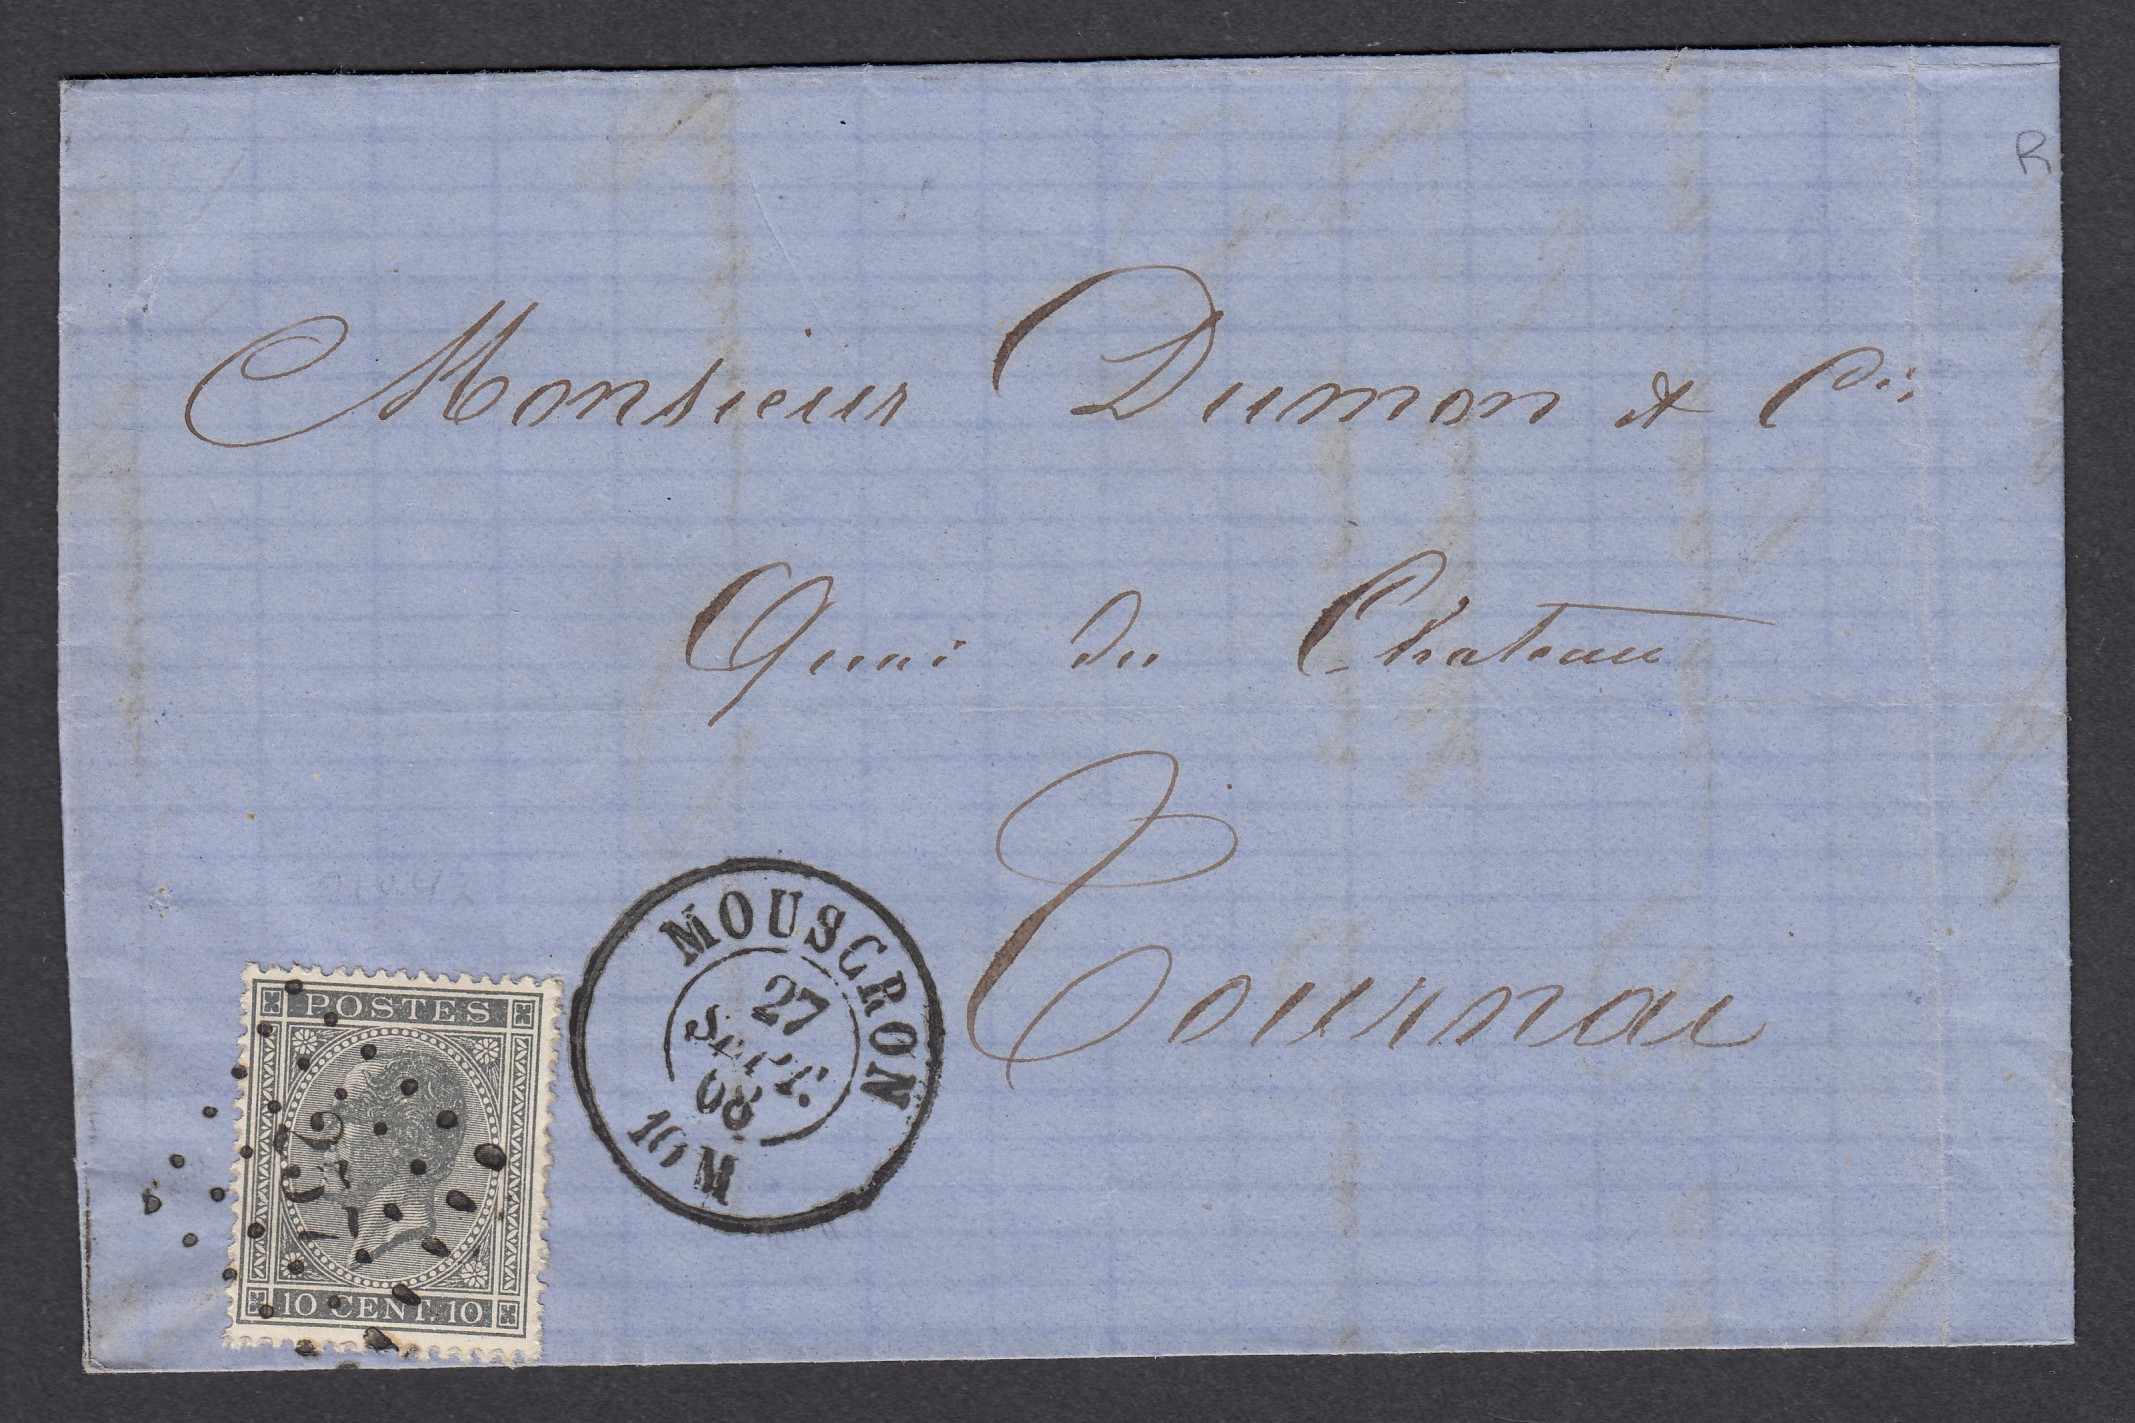 R
Monsieur Dumon & Cie
Quai du Chateau
Tournai
MOUSCRON
27
SEPT.
68
10 M
POSTES
10 CENT. 10